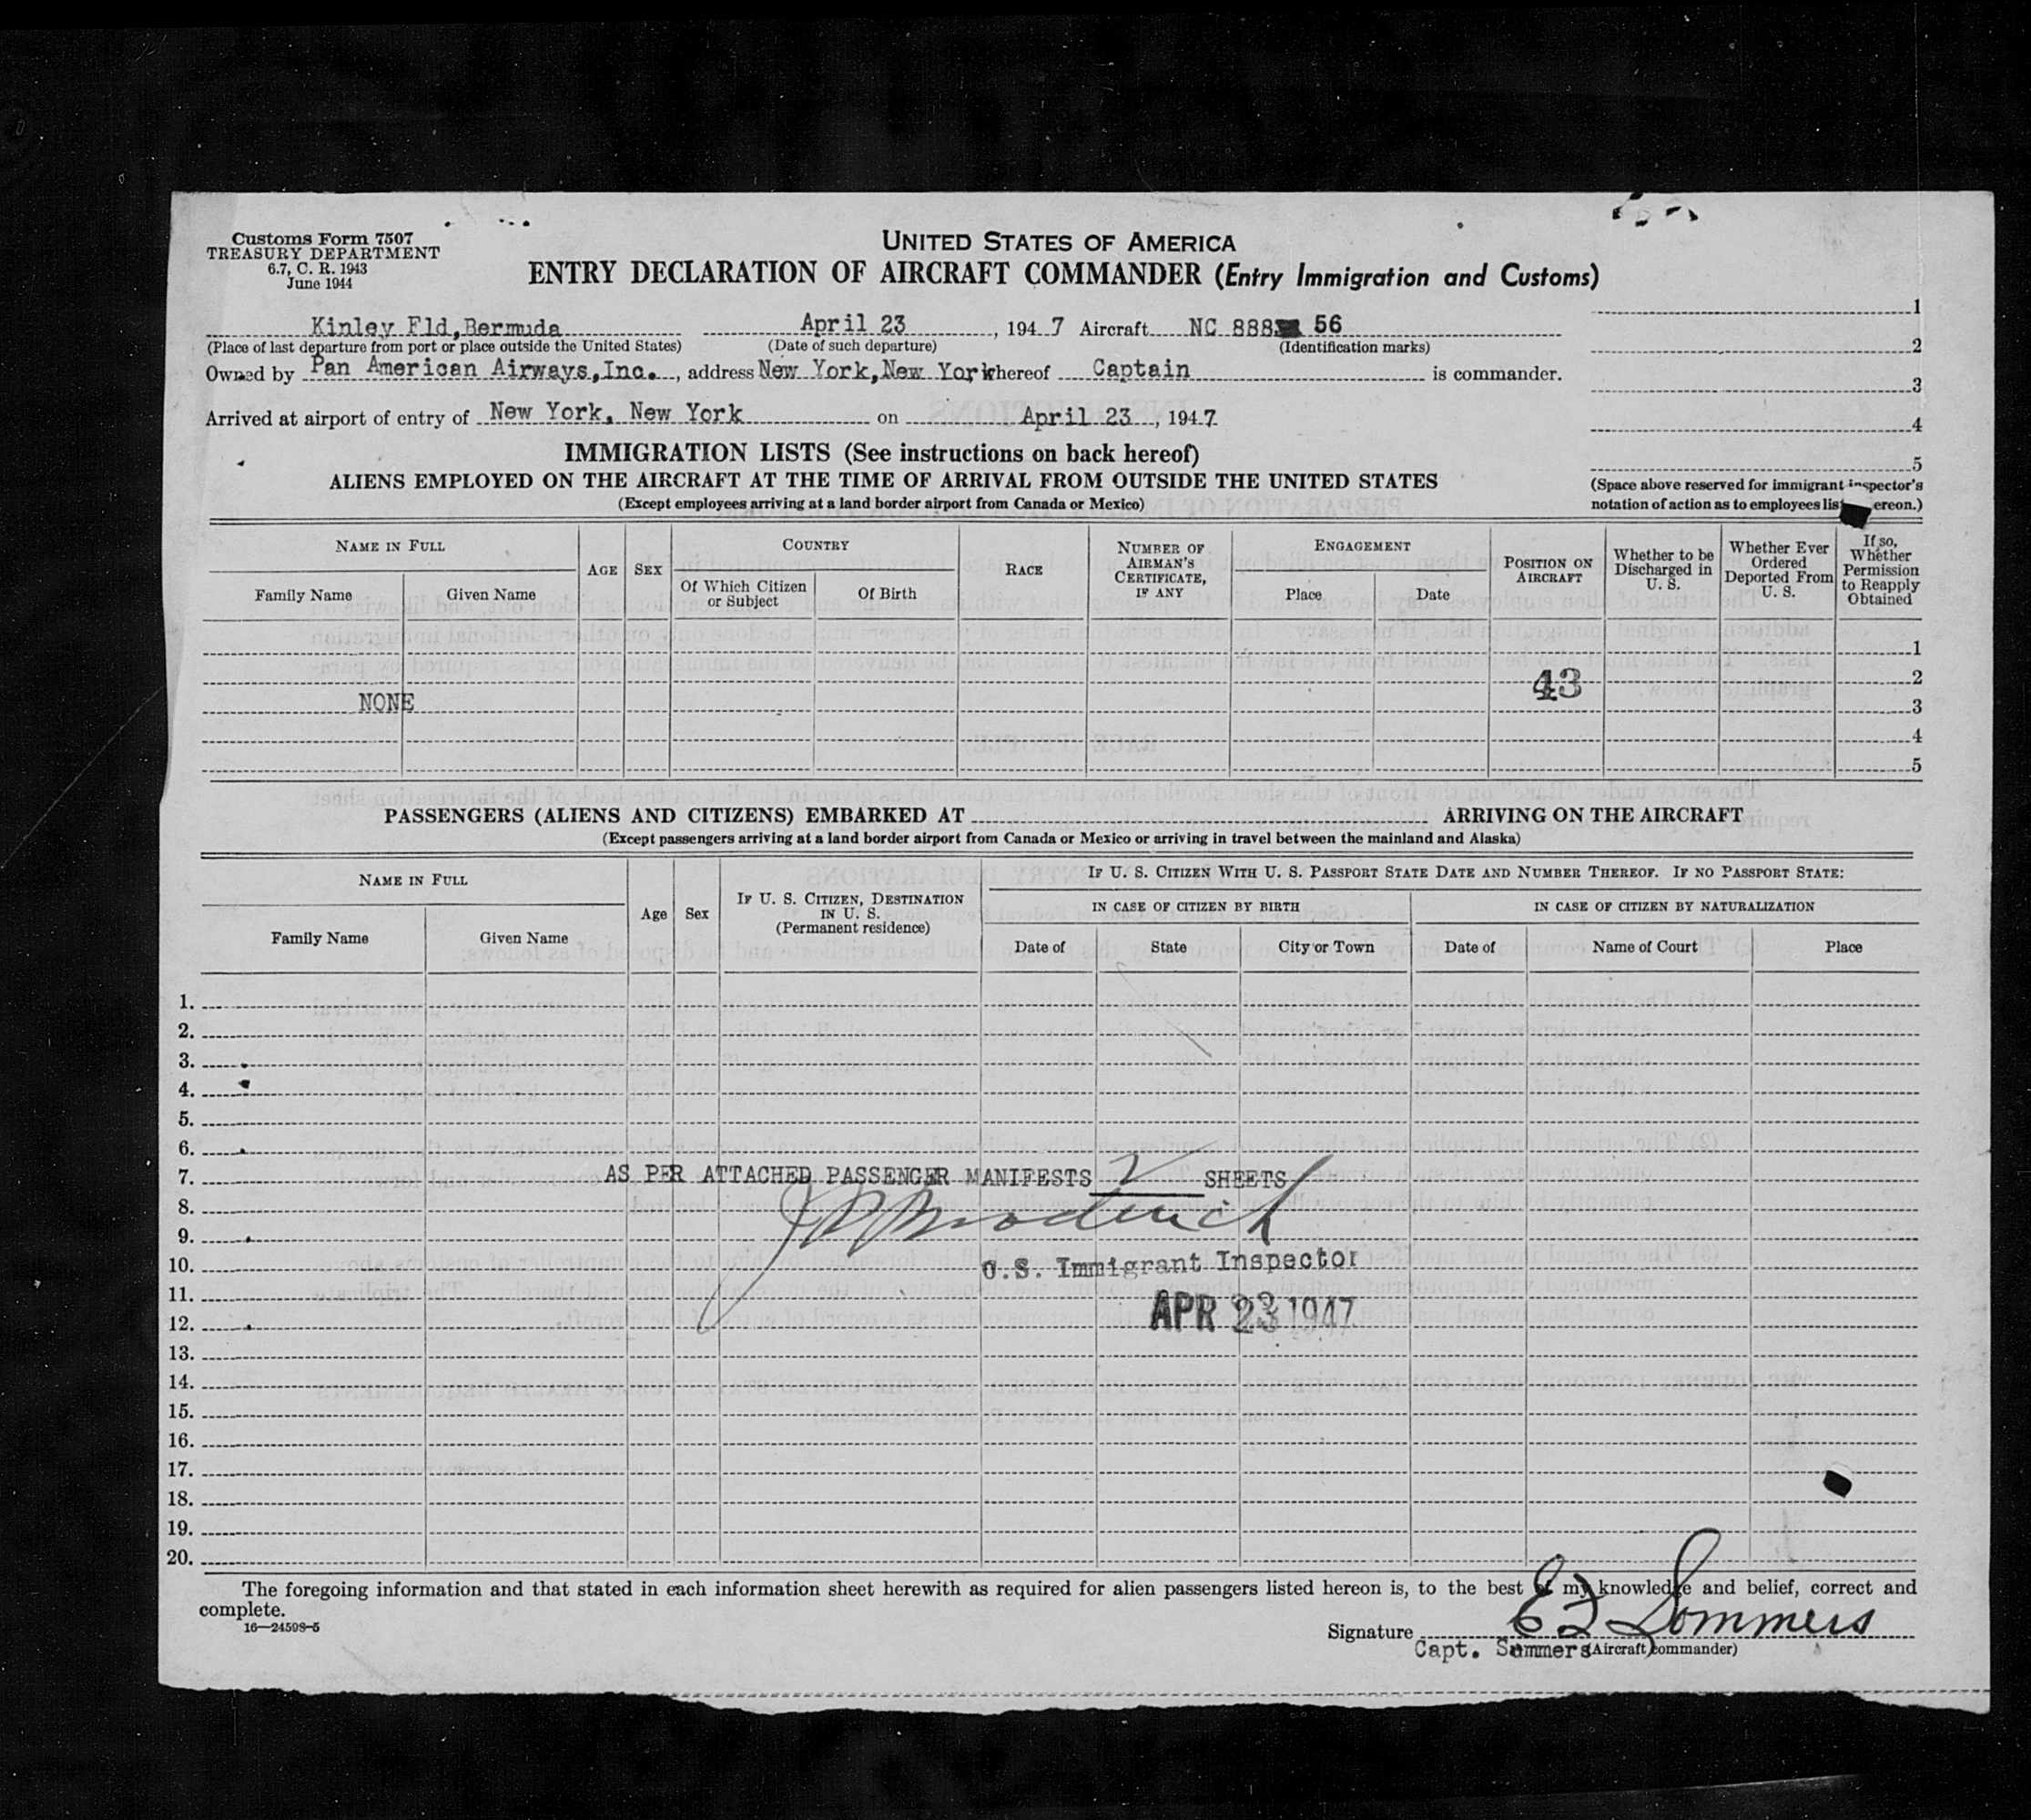 Customs Form 7507
TREASURY DEPARTMENT
6.7, C. R. 1943
June 1944
UNITED STATES OF AMERICA
ENTRY DECLARATION OF AIRCRAFT COMMANDER (Entry Immigration and Customs)
Kinley Fld,Bermuda April 23, 1947 Aircraft NC 888 56
(Place of last departure from port or place outside the United States) (Date of such departure) (Identification marks)
Owned by Pan American Airways,Inc., address New York,New York whereof Captain is commander.
Arrived at airport of entry of New York, New York on April 23, 1947
1
2
3
4
5
(Space above reserved for immigrant inspector's
notation of action as to employees listed hereon.)
IMMIGRATION LISTS (See instructions on back hereof)
ALIENS EMPLOYED ON THE AIRCRAFT AT THE TIME OF ARRIVAL FROM OUTSIDE THE UNITED STATES
(Except employees arriving at a land border airport from Canada or Mexico)
NAME IN FULL
Family Name Given Name
AGE SEX
COUNTRY
Of Which Citizen or Subject Of Birth
RACE
NUMBER OF AIRMAN'S CERTIFICATE, IF ANY
ENGAGEMENT
Place Date
POSITION ON AIRCRAFT
Whether to be Discharged in U. S.
Whether Ever Ordered Deported From U. S.
If so, Whether Permission to Reapply Obtained
1
43 2
NONE 3
4
5
PASSENGERS (ALIENS AND CITIZENS) EMBARKED AT ARRIVING ON THE AIRCRAFT
(Except passengers arriving at a land border airport from Canada or Mexico or arriving in travel between the mainland and Alaska)
NAME IN FULL
Family Name Given Name
Age Sex
IF U. S. CITIZEN, DESTINATION IN U. S. (Permanent residence)
IF U. S. CITIZEN WITH U. S. PASSPORT STATE DATE AND NUMBER THEREOF. IF NO PASSPORT STATE:
IN CASE OF CITIZEN BY BIRTH IN CASE OF CITIZEN BY NATURALIZATION
Date of State City or Town Date of Name of Court Place
1.
2.
3.
4.
5.
6.
7. AS PER ATTACHED PASSENGER MANIFESTS 2 SHEETS
8.
9.
10. U.S. Immigrant Inspector
11.
12. APR 23 1947
13.
14.
15.
16.
17.
18.
19.
20.
The foregoing information and that stated in each information sheet herewith as required for alien passengers listed hereon is, to the best of my knowledge and belief, correct and
complete.
16—24598-5
Signature E Sommers
Capt. Sommers (Aircraft commander)